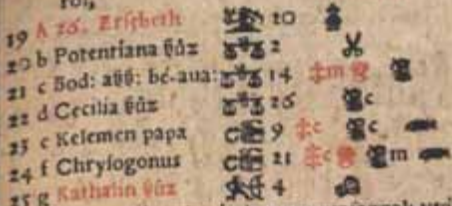 19 A 26. Erſebeth 10
20 b Potentiana ſzűz 2
21 c Bod: aßß: bé-aua: 14 m
22 d Cecilia ſzűz 26 c
23 e Kelemen papa 9 c c
24 f Chryſogonus 21 c m
25 g Kathalin ſzűz 4